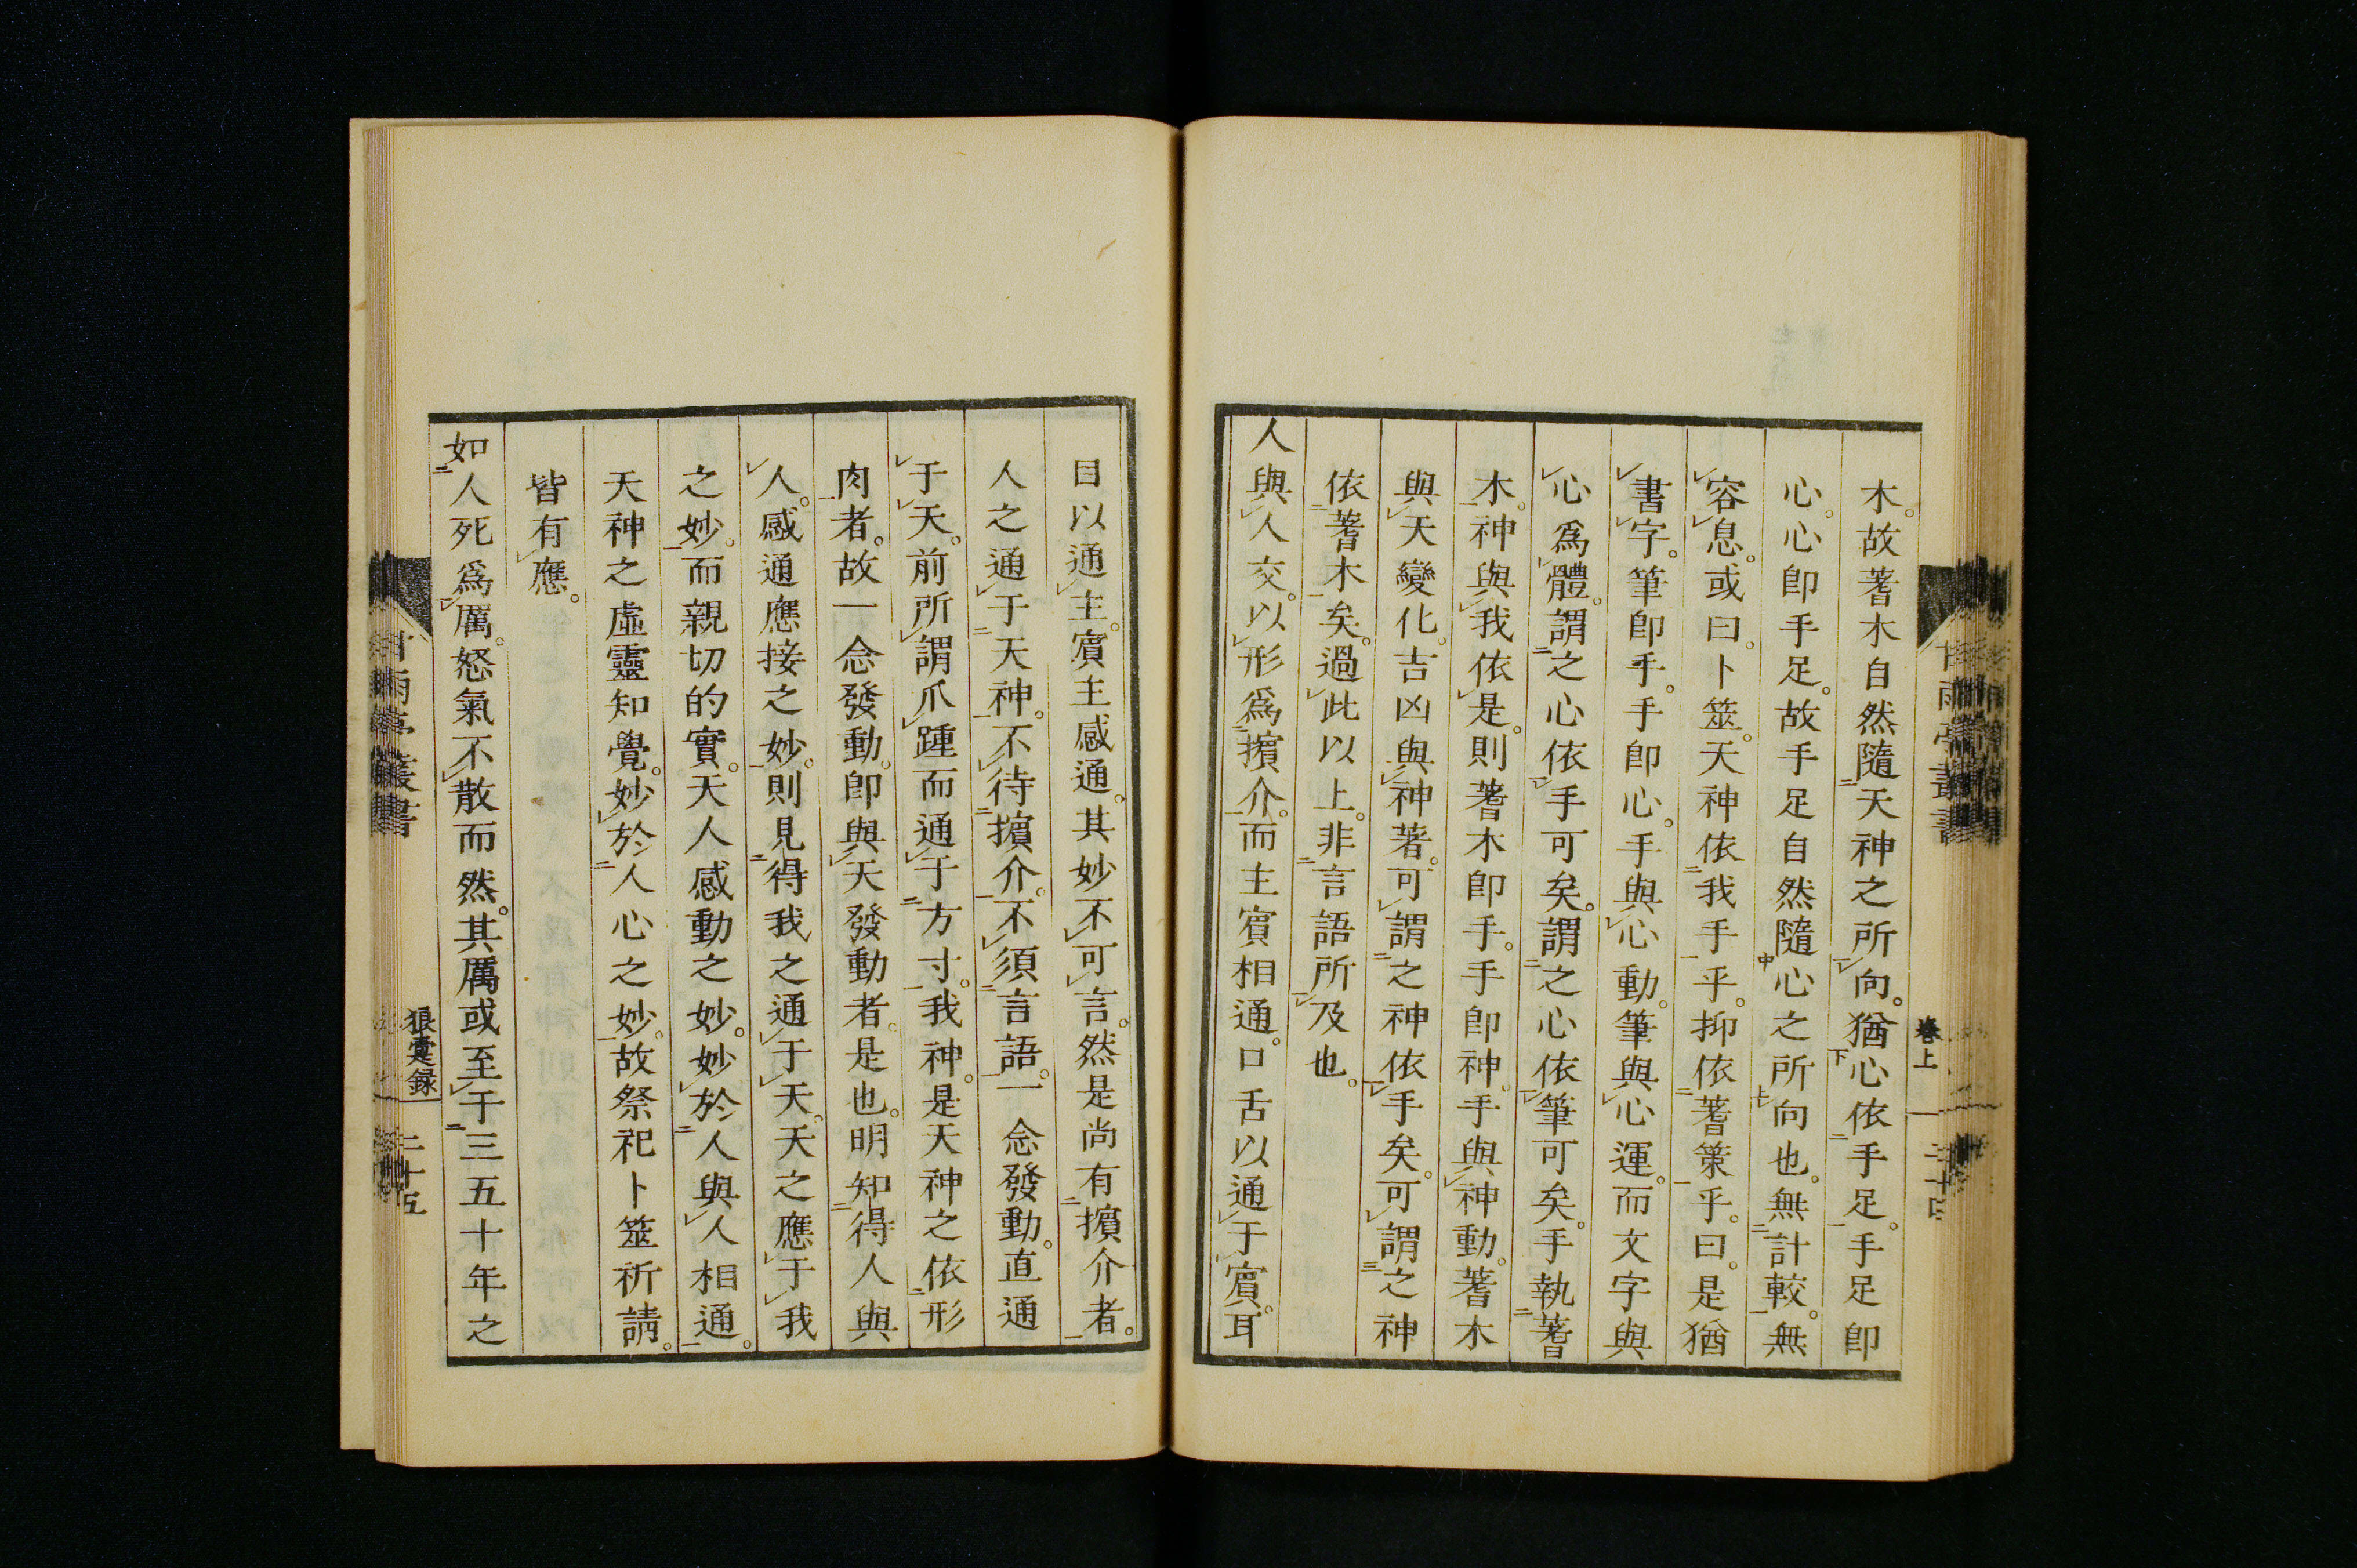 木。故蓍木自然隨天神之所向。猶心依手足。手足即
心。心即手足。故手足自然隨心之所向也。無計較。無
容息。或曰。卜筮。天神依我手乎。抑依蓍策乎。曰。是猶
書字。筆即手。手即心。手與心動。筆與心運。而文字與
心爲體。謂之心依手可矣。謂之心依筆可矣。手執蓍
木。神與我依是。則蓍木即手。手即神。手與神動。蓍木
與天變化。吉凶與神著。可謂之神依手矣。可謂之神
依蓍木矣。過此以上。非言語所及也。
人與人交。以形爲擯介。而主賓相通。口舌以通于賓。耳
卷上
目以通主。賓主感通。其妙不可言。然是尚有擯介者。
人之通于天神。不待擯介。不須言語。一念發動。直通
于天。前所謂爪踵而通于方寸。我神。是天神之依形
肉者。故一念發動。即與天發動者。是也。明知得人與
人。感通應接之妙。則見得我之通于天。天之應于我
之妙。而親切的實。天人感動之妙。妙於人與人相通。
天神之虛靈知覺。妙於人心之妙。故祭祀卜筮祈請。
皆有應。
如人死爲厲。怒氣不散而然。其厲或至于三五十年之
甘雨亭叢書
狼疐録
二十五